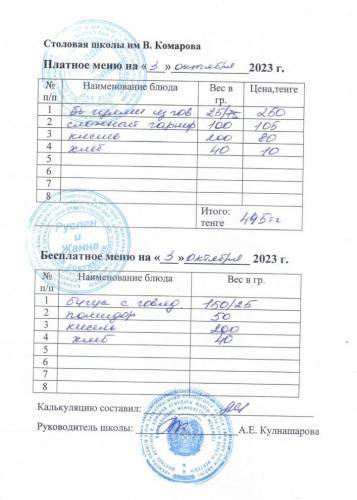 Столовая школы им В. Комарова
Платное меню на « 3 » октября 2023 г.
№ п/п Наименование блюда Вес в гр. Цена,тенге
1 25/75 250
2 сложный гарнир 100 105
3 кисель 200 80
4 хлеб 40 10
5
6
7
8
Итого: тенге 445тг
Руслан и Жанна
Бесплатное меню на « 3 » октября 2023 г.
№ п/п Наименование блюда Вес в гр.
1 с говяд 150/25
2 помидор 50
3 кисель 200
4 хлеб 40
5
6
7
8
Калькуляцию составил:
Руководитель школы: А.Е. Кулнашарова